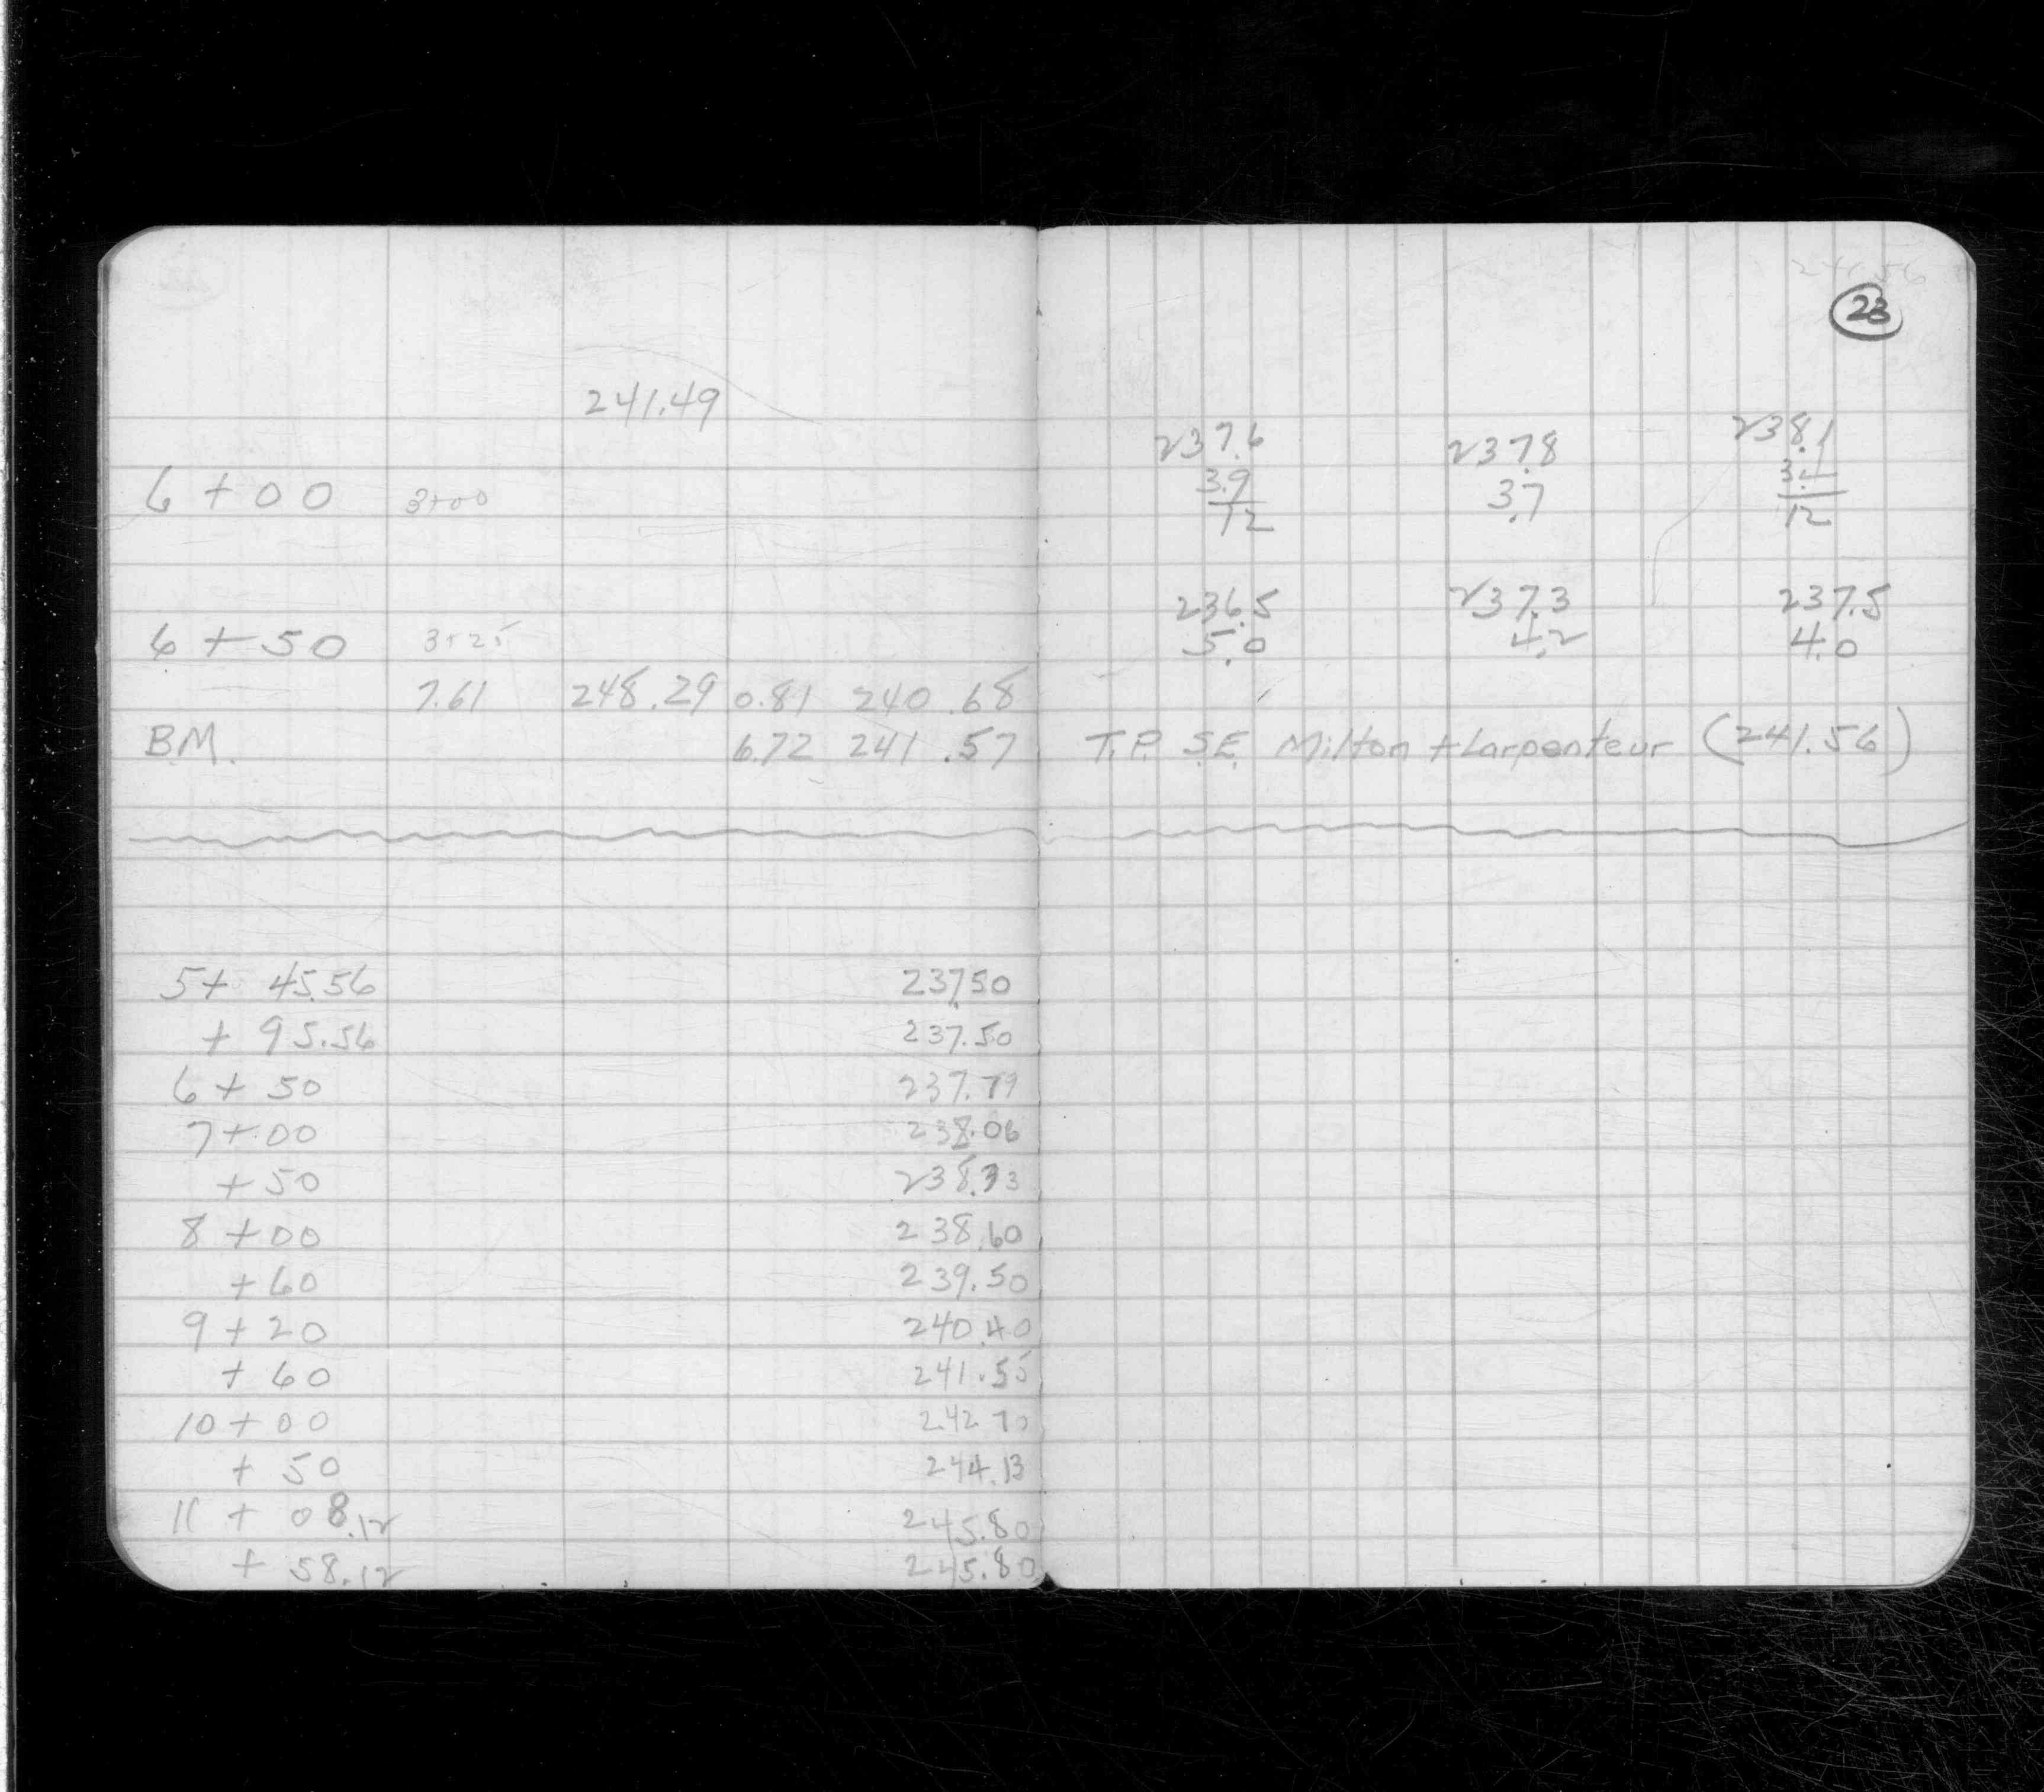 241.56
23
241.49
237.6 237.8 238.1
6+00 3+00 3.9 3.7 3.4
12 12
236.5 237.3 237.5
6+50 3+25 5.0 4.2 4.0
7.61 248.29 0.81 240.68
B.M. 6.72 241.57 T.P. S.E. Milton + Larpenteur (241.56)
5+ 45.56 237.50
+ 95.56 237.50
6+50 237.79
7+00 238.06
+50 238.33
8+00 238.60
+60 239.50
9+20 240.40
+60 241.55
10+00 242.70
+50 244.13
11+08.12 245.80
+58.12 245.80